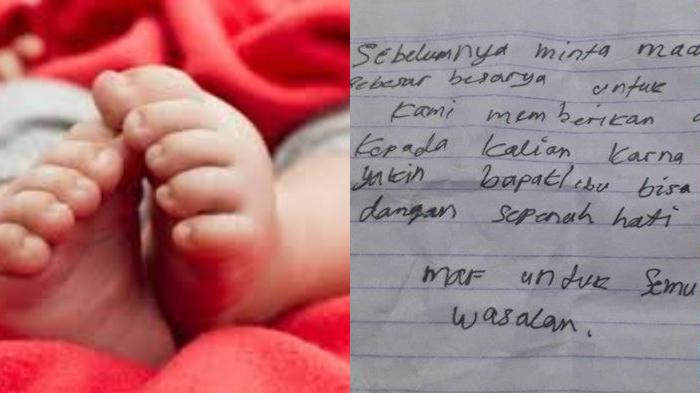 Sebelumnya minta maa
sebesar besarya untuk
Kami memberikan
Kepada kalian karna
yakin bapak/ibu bisa
dangan sepenah hati
maf untuk semu
wasalan.